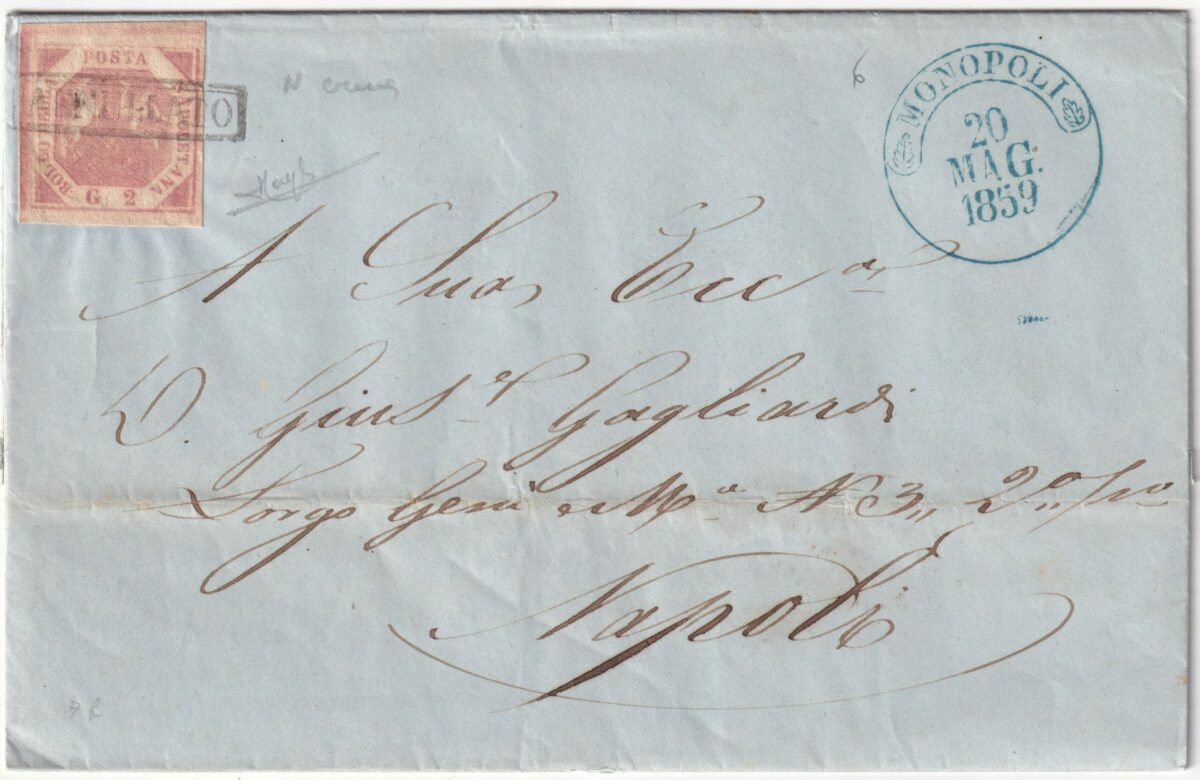 POSTA
NAPOLETANA
BOLLO DELLA
G. 2
ANNULLATO
MONOPOLI
20
MAG.
1859
6
A Sua Ecc.a
D. Gius.e Gagliardi
Largo Gesù e M.a N 3,, 2.o p.no
Napoli